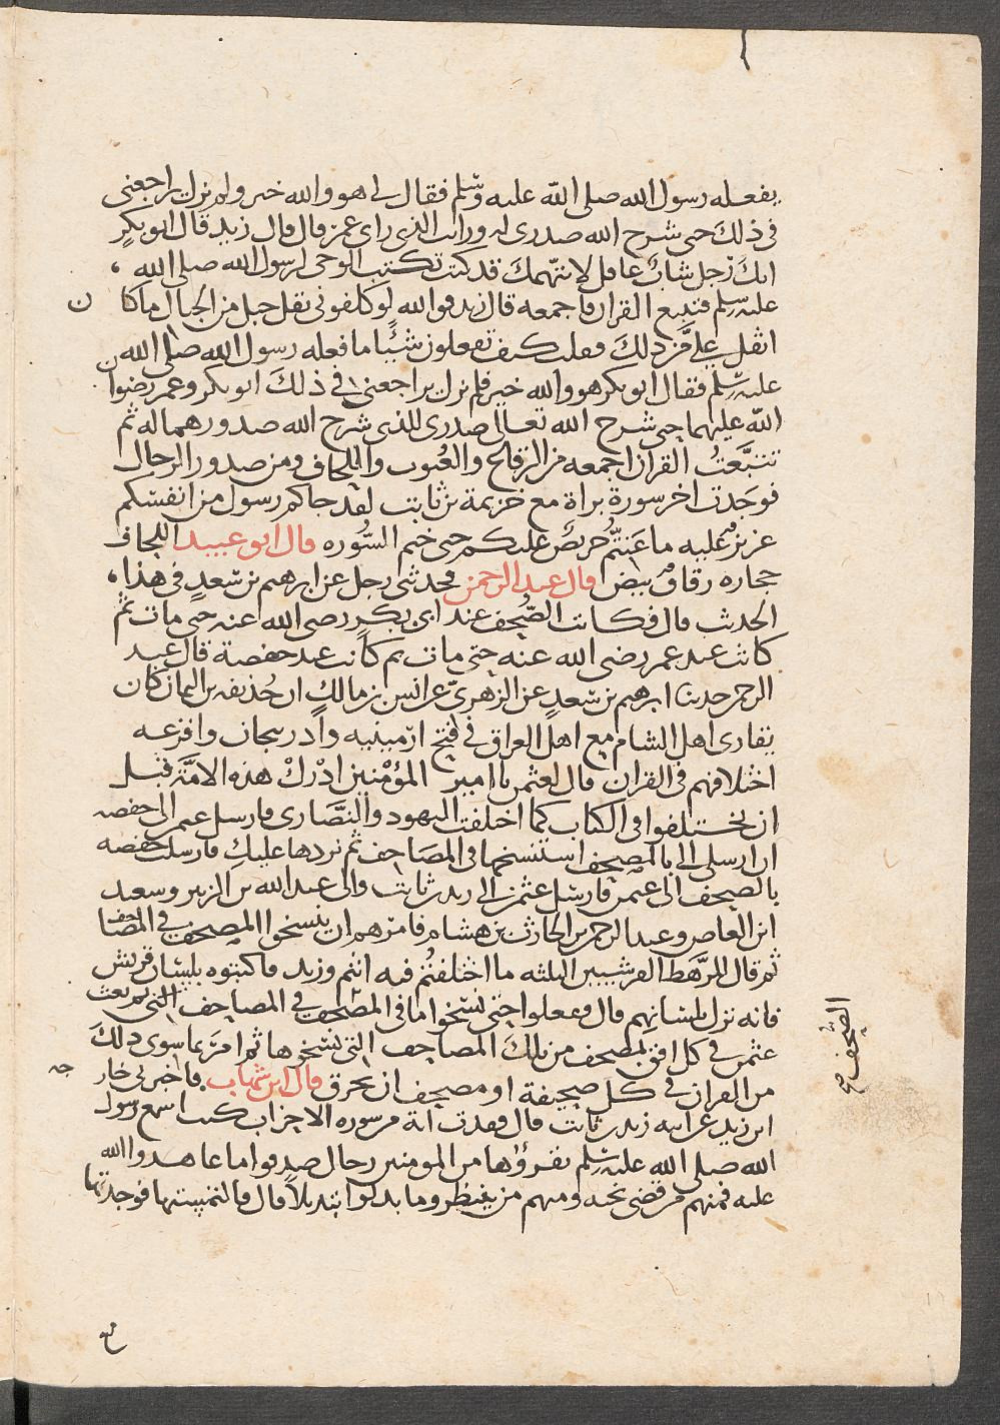 يفعله رسول الله صلى الله عليه وسلم فقال لي هو والله خير ولم نزل يراجعني
في ذلك حتى شرح الله صدري له ورايت الذي راى عمر قال قال زيد قال ابو بكر
انك رجل شاب عاقل لا نتهمك قد كنت تكتب الوحي لرسول الله صلى الله
عليه وسلم فتتبع القران فاجمعه قال زيد فوالله لو كلفوني نقل جبل من الجبال ما كا
ن
اثقل علي من ذلك فقلت كيف تفعلون شيئا ما فعله رسول الله صلى الله
عليه وسلم فقال ابو بكر هو والله خير فلم نزل يراجعني في ذلك ابو بكر وعمر رضوا
ن
الله عليهما حتى شرح الله تعالى صدري للذي شرح الله صدورهما له ثم
تتبعت القران اجمعه من الرقاع والعسوب واللخاف ومن صدور الرجال
فوجدت اخر سورة براة مع خزيمة بن ثابت لقد جاكم رسول من انفسكم
عزيز عليه ما عنتم حريص عليكم حتى ختم السوره قال ابو عبيد اللخاف
حجاره رقاق بيض قال عبد الرحمن فحدثني رجل عن ابرهيم بن سعد في هذا
الحديث قال فكانت الصحف عند ابي بكر رضي الله عنه حتى مات ثم
كانت عند عمر رضي الله عنه حتى مات ثم كانت عند حفصة قال عبد
الرحمن حدثنا ابرهيم بن سعد عن الزهري عن انس بن مالك ان حذيفه بن اليمان كان
يغازي اهل الشام مع اهل العراق في فتح ارمينيه واذربيجان وافزعه
اختلافهم في القران قال لعثمن يا امير المؤمنين ادرك هذه الامة قبل
ان يختلفوا في الكتاب كما اختلفت اليهود والنصارى فارسل عثمن الى حفصه
ان ارسلي الي بالمصحف استنسخها في المصاحف ثم نردها عليك فارسلت حفصه
بالصحف الى عثمن فارسل عثمن الى زيد بن ثابت والى عبد الله بن الزبير وسعيد
ابن العاص وعبد الرحمن بن الحارث بن هشام فامرهم ان ينسخوا المصحف في المصاحف
ثم قال للرهط القرشيين الثلثه ما اختلفتم فيه انتم وزيد فاكتبوه بلسان قريش
فانه نزل بلسانهم قال ففعلوا حتى نسخوا ما في المصحف في المصاحف التي ثم بعث
عثمن في كل افق بمصحف من تلك المصاحف التي نسخوها ثم امر بما سوى ذلك
من القران في كل صحيفة او مصحف ان يحرق قال ابن شهاب فاخبرني خار
جه
ابن زيد عن ابيه زيد بن ثابت قال فقدت اية من سوره الاحزاب كنت اسمع رسول
الله صلى الله عليه وسلم يقرؤها من المومنين رجال صدقوا ما عاهدوا الله
عليه فمنهم من قضى نحبه ومنهم من ينتظر وما بدلوا تبديلا قال فالتمستها فوجدتها
الصحف